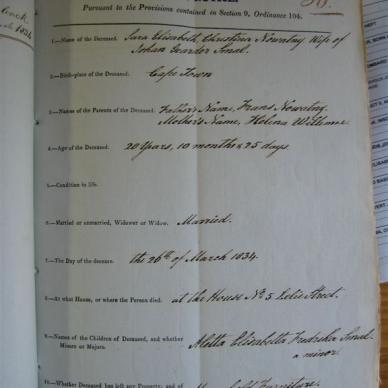 Pursuant to the Provisions contained in Section 9, Ordinance 104.
1.—Name of the Deceased. Sara Elizabeth Christina Nowatny Wife of
Johan Smal.
2.—Birth-place of the Deceased. Cape Town
3.—Names of the Parents of the Deceased. Father's Name, Frans Nowatny.
Mother's Name, Helena Willemse
4.—Age of the Deceased. 20 Years, 10 months & 25 days.
5.—Condition in life.
6.—Married or unmarried, Widower or Widow. Married.
7.—The Day of the decease. the 26th of March 1834.
8.—At what House, or where the Person died. at the House No 5 Street.
9.—Names of the Children of Deceased, and whether Minors or Majors. Elisabetta Fredrika Smal.
a minor
10.—Whether Deceased has left any Property; and of Furniture